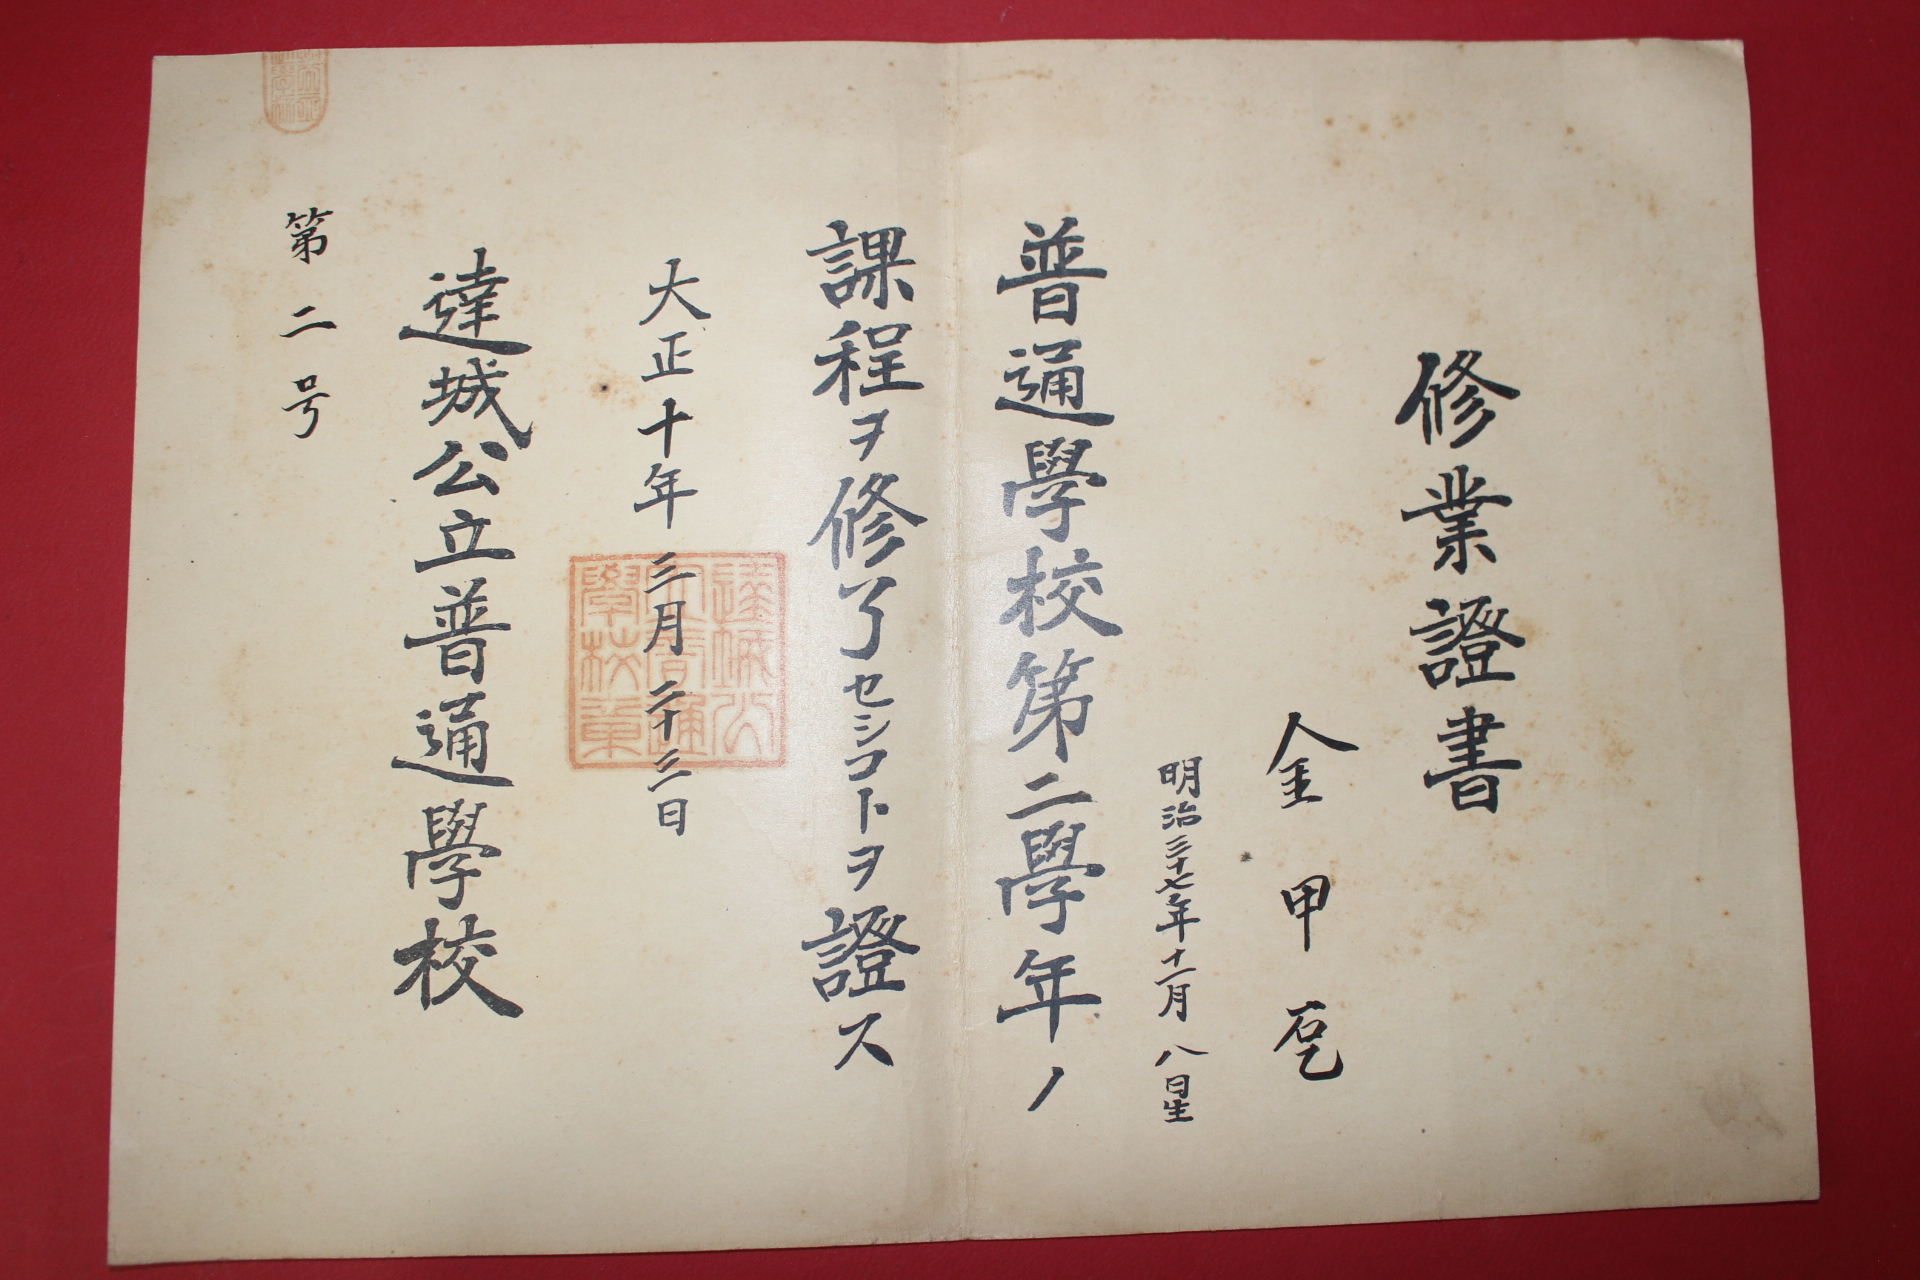 修業證書
金甲乭
明治三十七年十一月八日生
普通學校第二學年ノ
課程ヲ修了セシコトヲ證ス
大正十年三月二十三日
達城公立普通學校
第二号
達城公
立普通
學校章